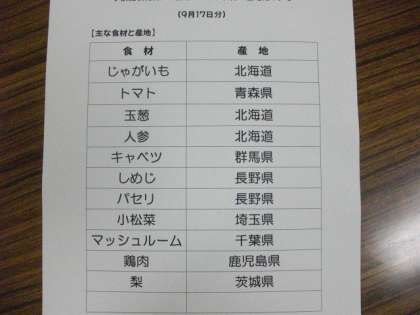 (9月17日分)
【主な食材と産地】
食材 産地
じゃがいも 北海道
トマト 青森県
玉葱 北海道
人参 北海道
キャベツ 群馬県
しめじ 長野県
パセリ 長野県
小松菜 埼玉県
マッシュルーム 千葉県
鶏肉 鹿児島県
梨 茨城県